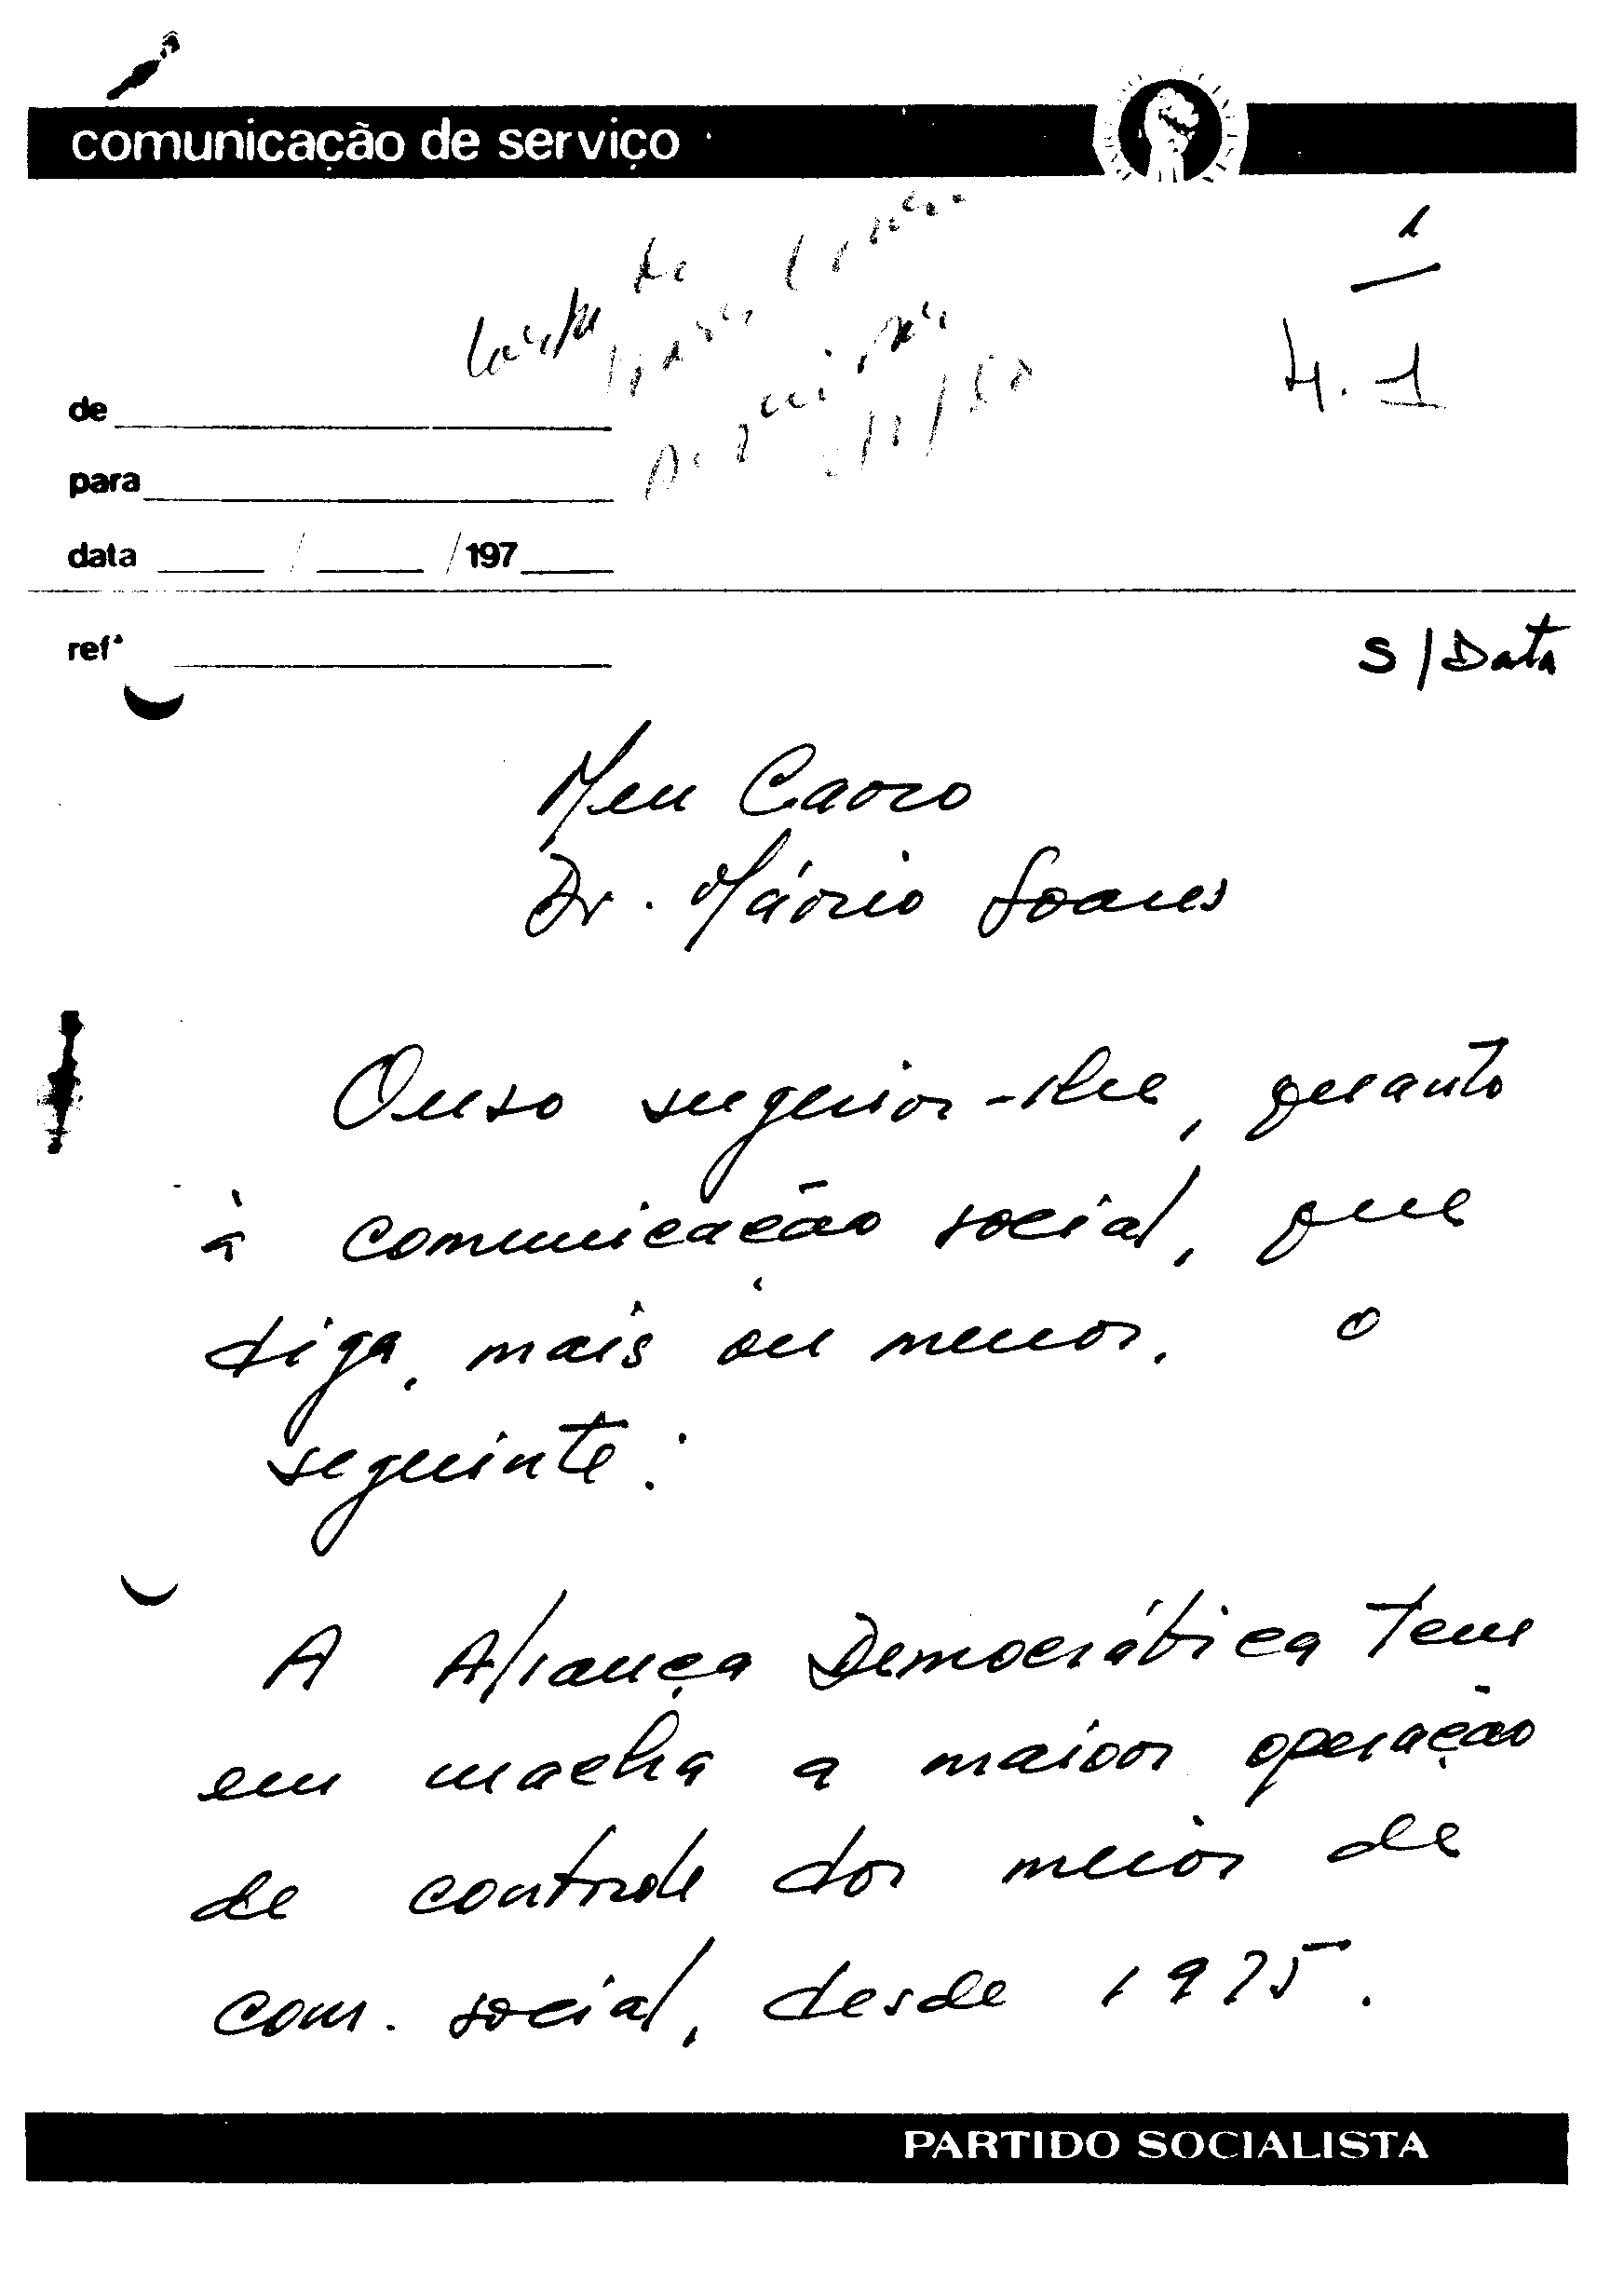 comunicação de serviço
1
4.1
de
para
data / /197
refª
S/Data
Meu Caro
Dr. Mário Soares
Ouso sugerir-lhe, quanto
à comunicação social, que
diga, mais ou menos, o
seguinte:
A Aliança Democrática tem
em macha a maior operação
de controle dos meios de
com. social, desde 1975.
PARTIDO SOCIALISTA